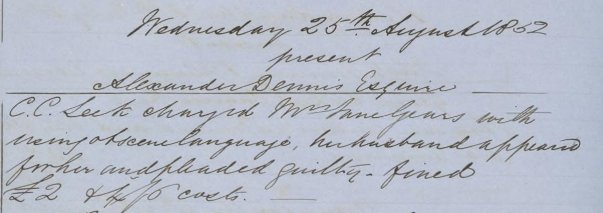 Wednesday 25th August 1852
present
Alexander Dennis Esquire
C.C. Leek charged Mrs Jane Gears with
using obscene language, her husband appeared
for her and pleaded guilty - fined
£2 & costs.